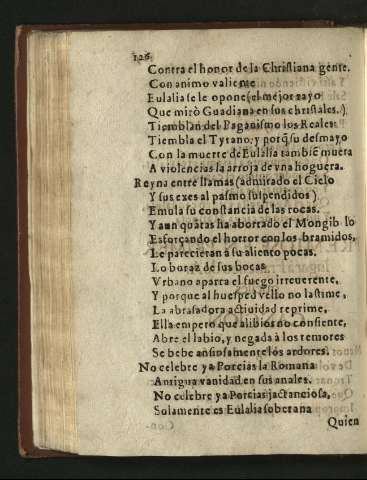 126.
Contra el honor de la Christiana gente.
Con animo valiente
Eulalia se le opone (el mejor rayo
Que mirò Guadiana en sus christales.)
Tiemblan del Paganismo los Reales:
Tiembla el Tyrano, y porq̃ su desmayo
Con la muerte de Eulalia tambiẽ muera
A violencias la arroja de vna hoguera.
Reyna entre llamas (admirado el Cielo
Y sus exes al pasmo suspendidos)
Emula su constancia de las rocas.
Y aun quãtas ha abortado el Mongib lo
Esforçando el horror con los bramidos,
Le parecieran à su aliento pocas.
Lo boraz de sus bocas
Vrbano aparta el fuego irreuerente,
Y porque al huesped vello no lastime,
La abrasadora actiuidad reprime,
Ella empero que alibios no consiente,
Abre el labio, y negada à los temores
Se bebe ansiosamente los ardores.
No celebre ya Porcias la Romana
Antigua vanidad en sus anales.
No celebre ya Porcias jactanciosa,
Solamente es Eulalia soberana
Quien